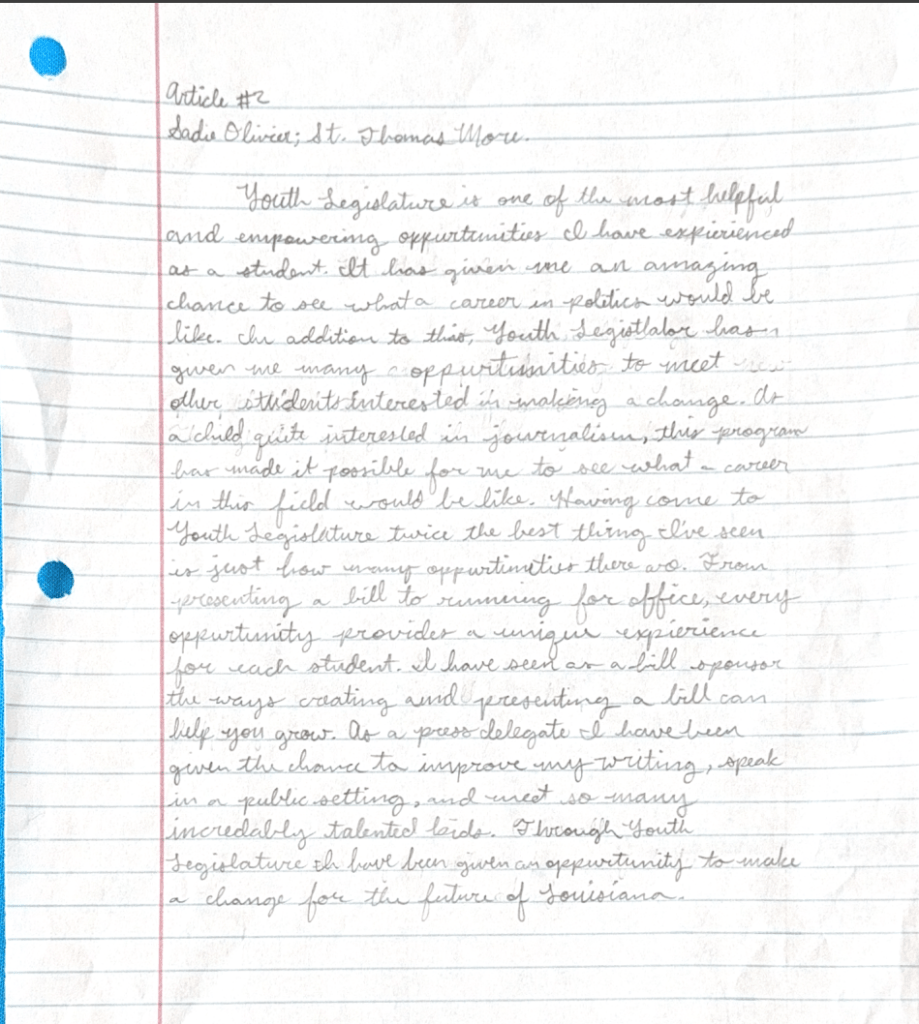 Article #2
Sadie Olivier; St. Thomas More.
Youth Legislature is one of the most helpful
and empowering oppurtunities I have expierienced
as a student. It has given me an amazing
chance to see what a career in politics would be
like. In addition to this, Youth Legistlator has
given me many oppurtunities to meet
other students interested in making a change. As
a child quite interested in journalism, this program
has made it possible for me to see what a career
in this field would be like. Having come to
Youth Legislature twice the best thing I've seen
is just how many oppurtinities there are. From
presenting a bill to running for office, every
oppurtunity provides a unique expierience
for each student. I have seen as a bill sponsor
the ways creating and presenting a bill can
help you grow. As a press delegate I have been
given the chance to improve my writing, speak
in a public setting, and meet so many
incredably talented kids. Through Youth
Legislature I have been given an oppurtunity to make
a change for the future of Louisiana.